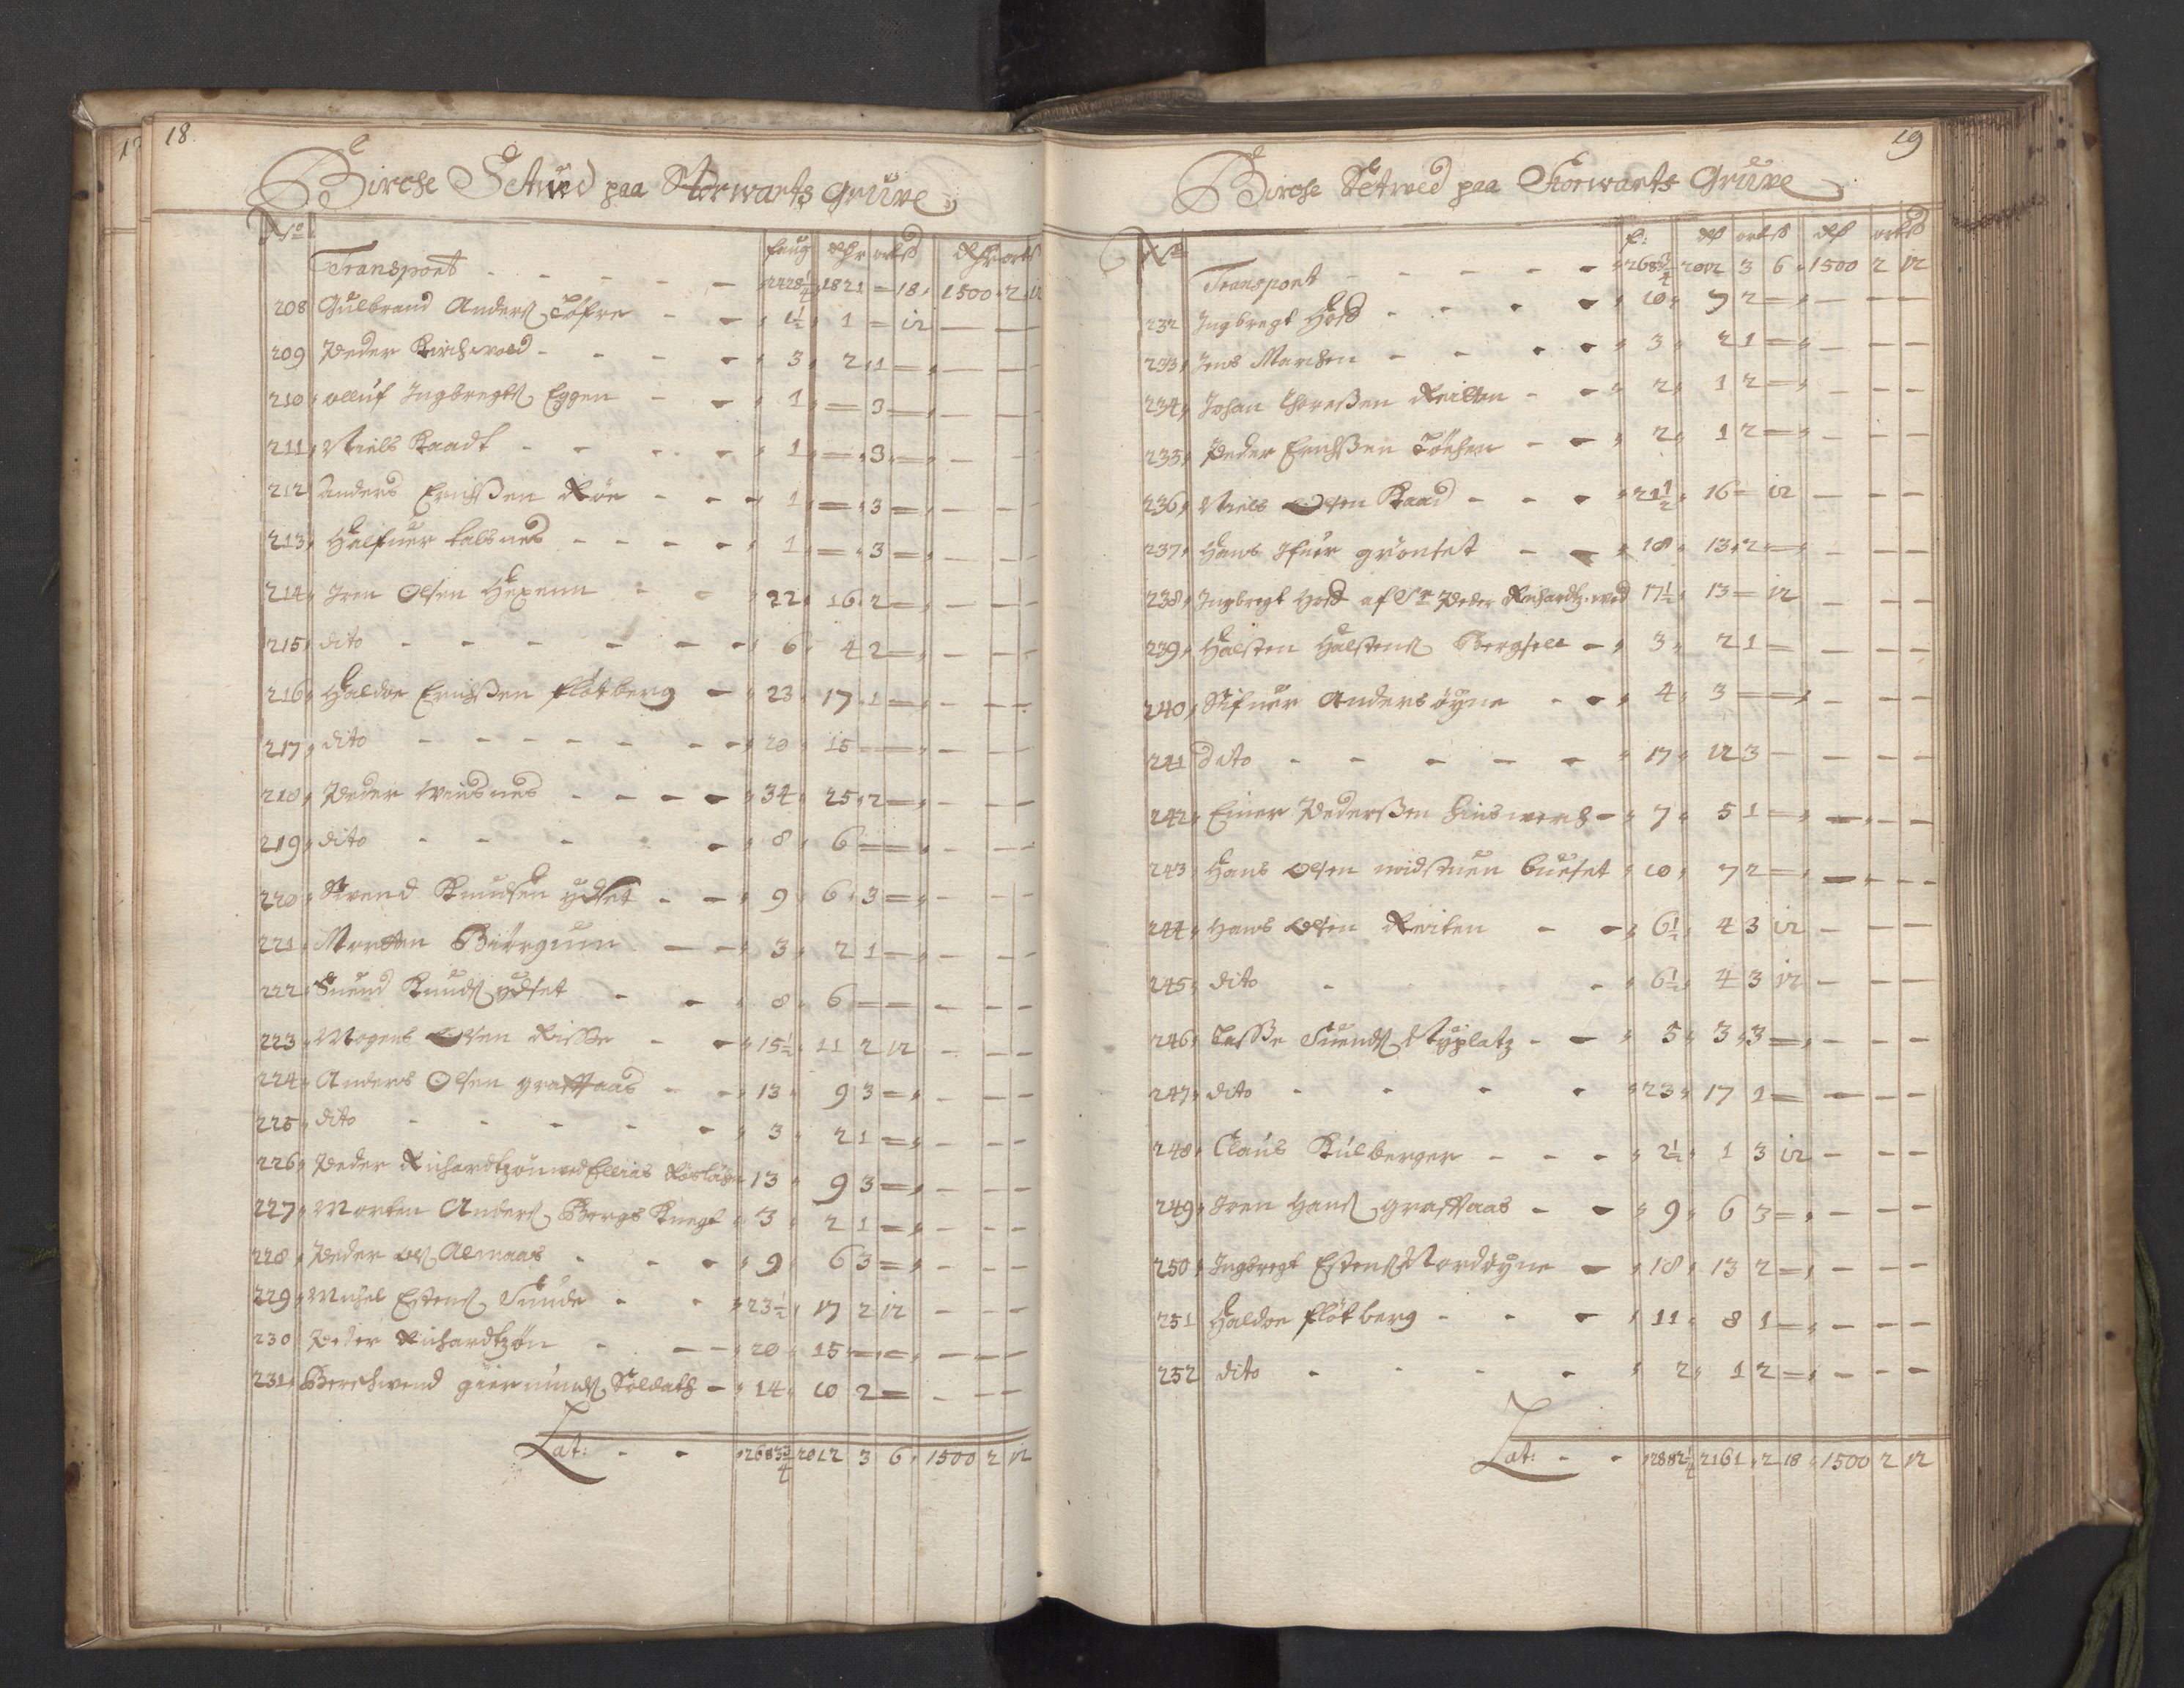 18
Birche Setwed paa Storwarts Grüve
No
faug Rhr ort ß Rhr ort ß
Transport - - - - - 2428¼ 1821 = 18 1500 2 12
208 Gulbrand Anders Töfre - - 1½ 1 = 12 — —
209 Peder Kirchwold - - - - 3 2 1 = — —
210 olluf Ingbregts Eggen - - 1 = 3 = — —
211 Niels Kaadt - - - - - 1 = 3 = — —
212 Anders Erichßen Röe - - - 1 = 3 = — — —
213 Halfuer Calsned - - - - - 1 = 3 = — — —
214 Iren Olsen Hexemn - - 22 16 2 = — — —
215 dito - - - - - - - 6 4 2 = — — —
216 Haldoe Erichßen flötberg - 23 17 1 = — — —
217 dito - - - - - - - 20 15 — — — — —
218 Peder Wiidsnes - - - - 34 25 2 = — — —
219 dito - - - - - 8 6 = = — — —
220 Svend Knudsen ydset - - 9 6 3 = — — —
221 Morten Biörgum - - 3 2 1 = — — —
222 Suend Knuds ydset - - 8 6 = = — — —
223 Mogens Olsen Riße - - 15½ 11 2 12 — — —
224 Anders Olsen graffaas - - 13 9 3 = — — —
225 dito - - - - - 3 2 1 = — — —
226 Peder Richardtzön wed Ellias 13 9 3 = — — —
227 Morten Anders Bergs Knegt 3 2 1 = — — —
228 Peder Ols Almaas - - - 9 6 3 = — — —
229 Michel Estens Sunde - - 23½ 17 2 12 — — —
230 Peder Richardtzön - - - 20 15 = = — — —
231 Berchwend giermunds Soldath - 14 10 2 = — — —
Lat: - - 2683¾ 2012 3 6 1500 2 12
19
Birche Setwed paa Storwarts Grüve
No
f: Rd ort ß Rd ort ß
Transport - - - - - 2683¾ 2012 3 6 1500 2 12
232 Ingbregt Hosd - - - - 10 7 2 = — — —
233 Jens Marchen - - - - 3 2 1 = — — —
234 Johan Thoreßen Reitten - - 2 1 2 = — — —
235 Peder Erichßen Töchen - - 2 1 2 = — — —
236 Niels Olsen Kaad - - - 21½ 16 = 12 — — —
237 Hans Ifuer grönset - - 18 13 2 = — — —
238 Ingbregt Hosd af Sr Peder Richardtz: wed 17½ 13 = 12 — — —
239 Halsten Halstens Bergsell - 3 2 1 = — — —
240 Sifuer Anders öyne - - 4 3 = = — — —
241 dito - - - - - 17 12 3 — — — —
242 Einer Pederßen - 7 5 1 = — — —
243 Hans Olsen midstuen bueset 10 7 2 = — — —
244 Hans Olsen Reiten - - 6½ 4 3 12 — — —
245 dito - - 6½ 4 3 12 — — —
246 Laße Suends Nyplatz - - 5 3 3 = — — —
247 dito - - - - 23 17 1 = — — —
248 Claus Kulberger - - - 2½ 1 3 12 — — —
249 Iren Hans graffaas - - 9 6 3 = — — —
250 Ingbregt Estens Nordöyne - 18 13 2 = — — —
251 Haldoe flötberg - - - 11 8 1 = — — —
252 dito - - - - 2 1 2 = — — —
Lat: - - 2882¼ 2161 2 18 1500 2 12